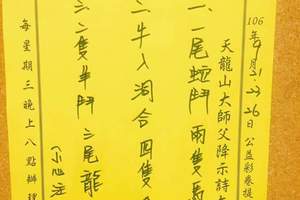 106年9月21.23.26日公益彩卷提
天龍山大師父降示詩
一、一尾蛇鬥兩隻馬
二牛入洞合四隻
三二隻牛鬥三尾龍
(小心注
每星期三晚上八點辦理